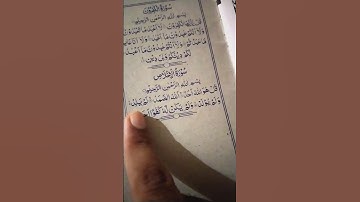 سُوْرَةُ الْكٰفِرُوْنَ
بِسْمِ اللهِ الرَّحْمٰنِ الرَّحِيْمِ
قُلْ يٰٓاَيُّهَا الْكٰفِرُوْنَ لَآ اَعْبُدُ مَا تَعْبُدُوْنَ
وَلَآ اَنْتُمْ عٰبِدُوْنَ مَآ اَعْبُدُ وَلَآ اَنَا
مَّا عَبَدْتُّمْ وَلَآ اَنْتُمْ عٰبِدُوْنَ مَآ اَعْبُدُ
لَكُمْ دِيْنُكُمْ وَلِيَ دِيْنِ
سُوْرَةُ الْاِخْلَاصِ
بِسْمِ اللهِ الرَّحْمٰنِ الرَّحِيْمِ
قُلْ هُوَ اللهُ اَحَدٌ اَللهُ الصَّمَدُ لَمْ يَلِدْ
وَلَمْ يُوْلَدْ وَلَمْ يَكُنْ لَّهٗ كُفُوًا